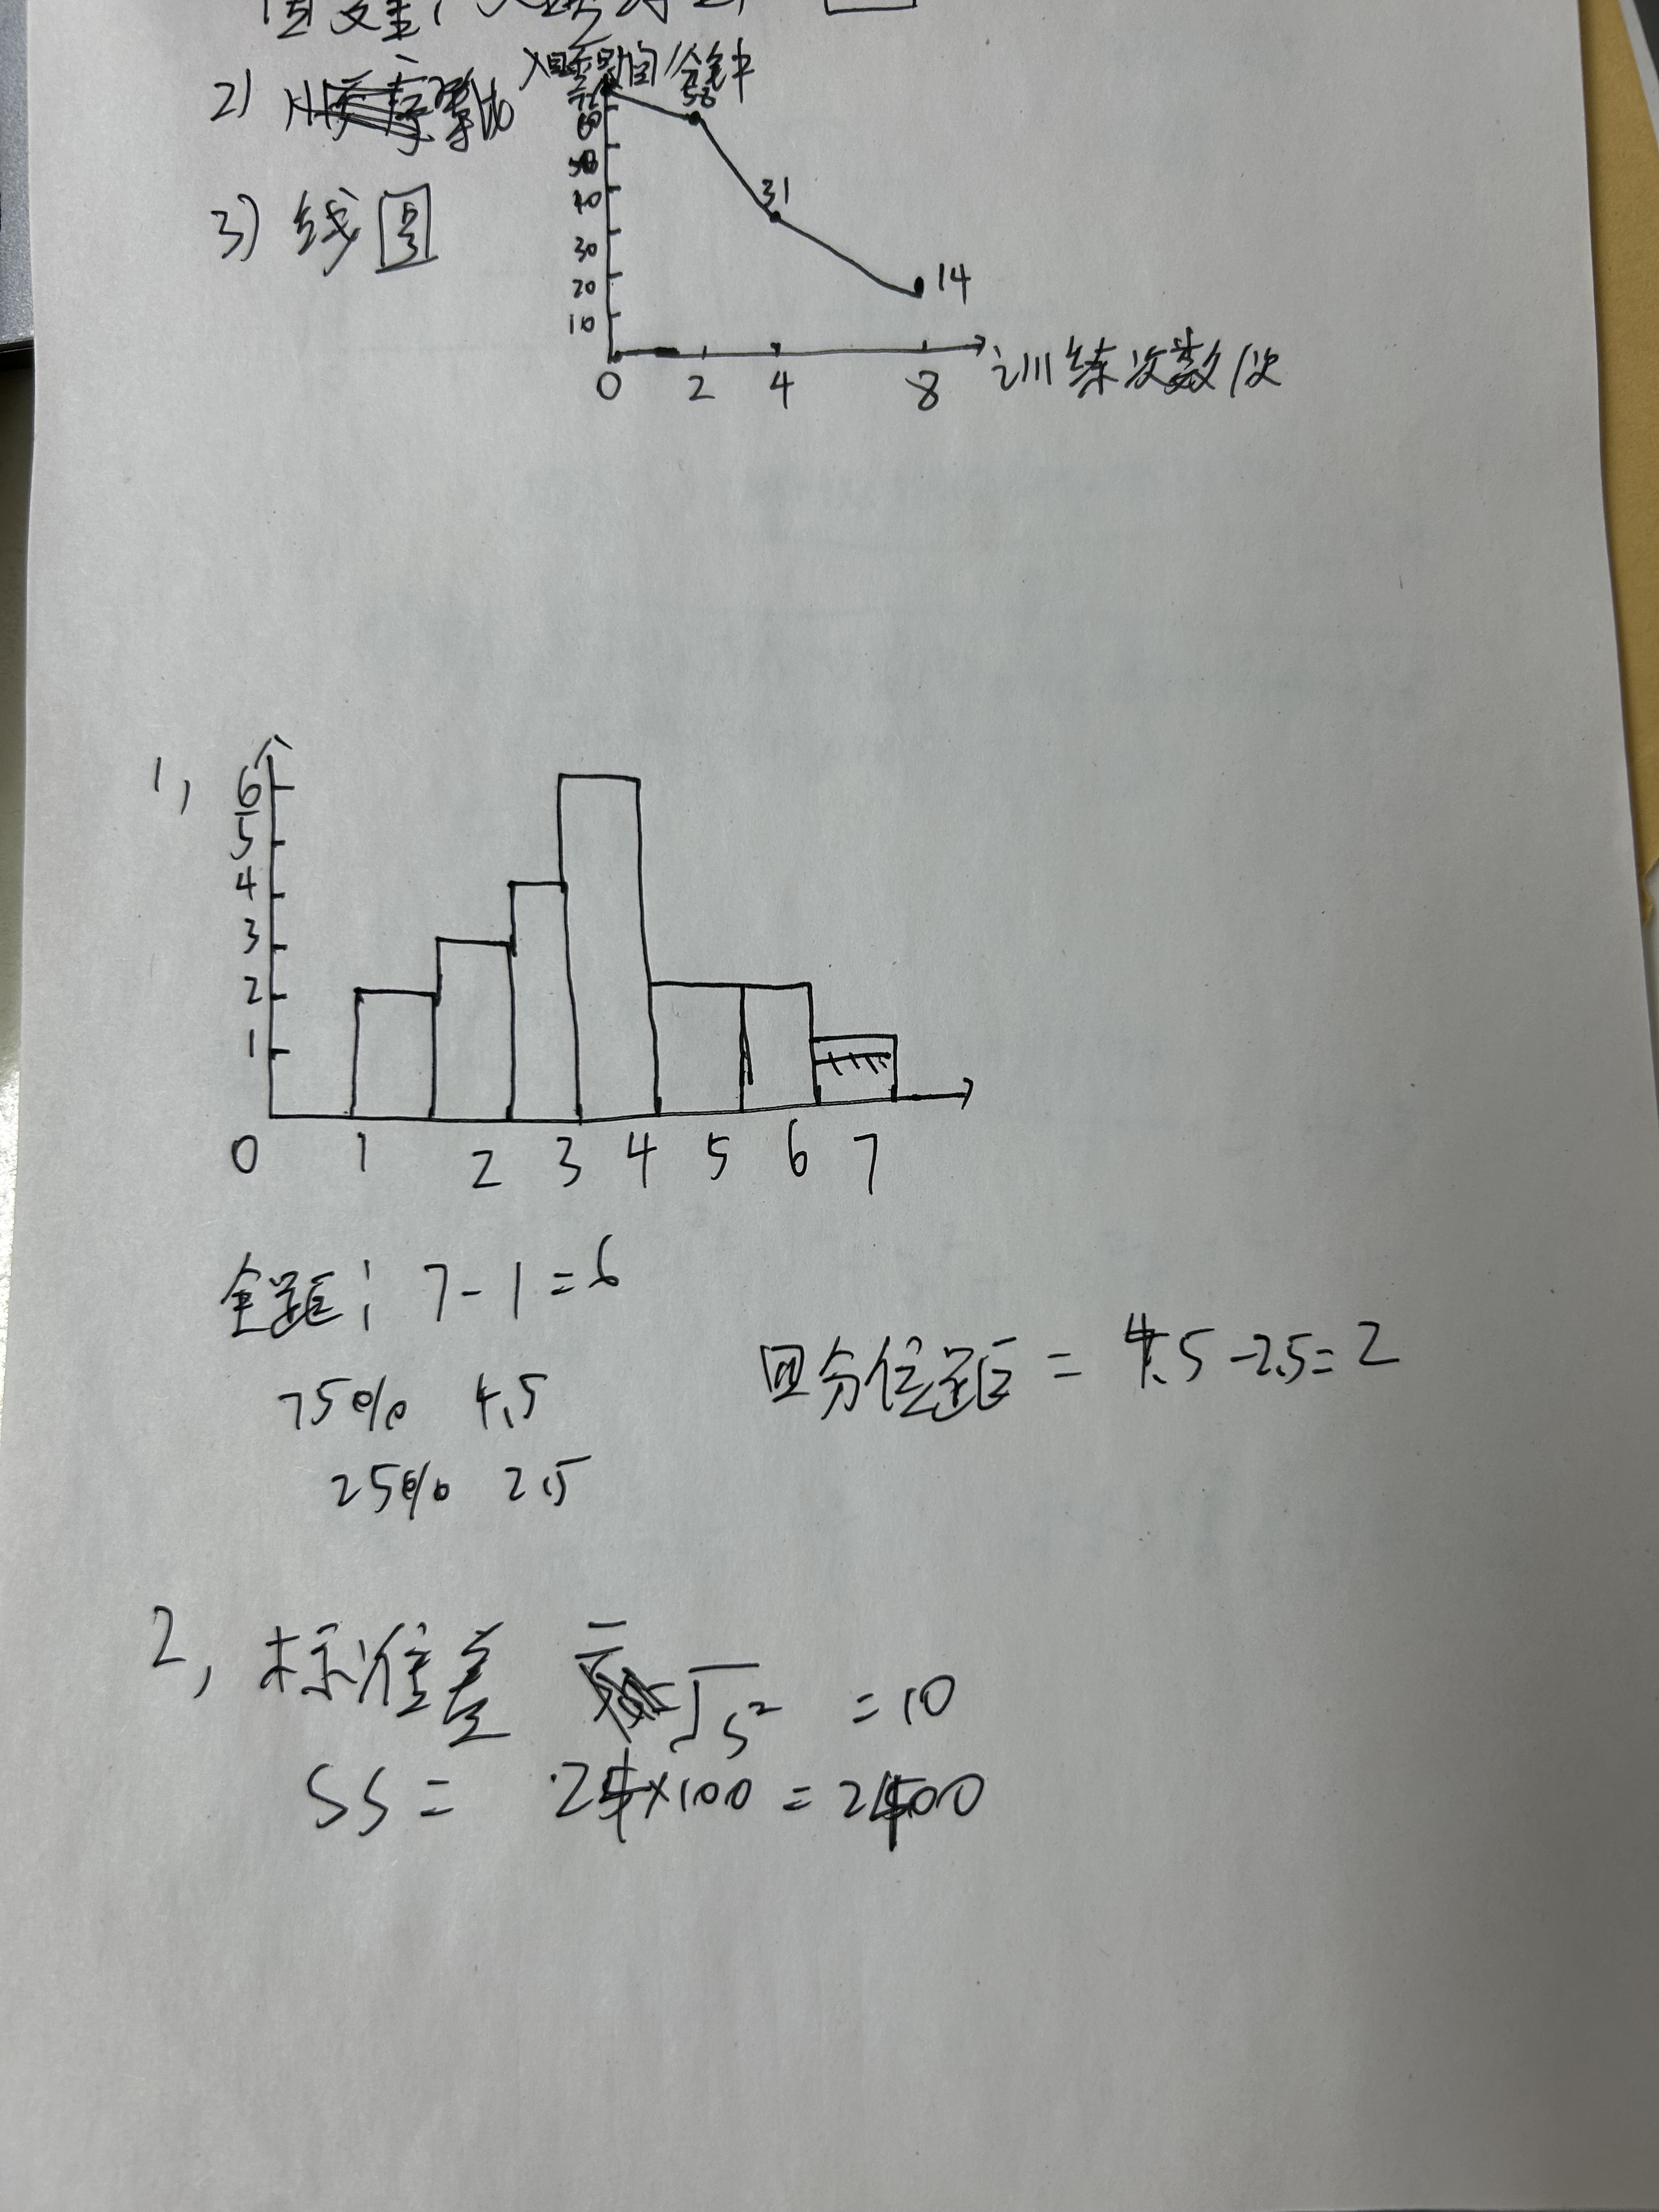 2) 比
入睡时间/分钟
58
60
50
40
30
20
10
31
14
0 2 4 8 训练次数/次
3) 线图
1,
6
5
4
3
2
1
0 1 2 3 4 5 6 7
全距: 7-1=6
75% 4.5
四分位距 = 4.5-2.5=2
25% 2.5
2, 标准差 = √s² =10
SS = 24×100 = 2400